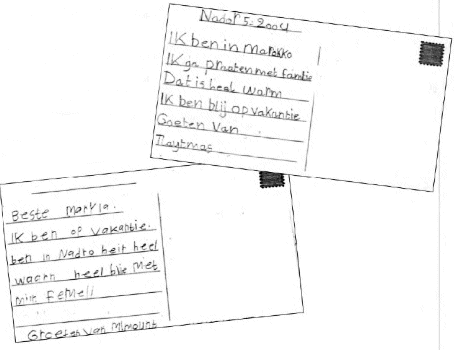 Nador 5-2004
Ik ben in Marokko
Ik ga praaten met familie
Dat is heel warm
Ik ben blij op vakantie
Goeten van
Taytmas
Beste Maryla.
Ik ben of vakantie.
ben in Nadro heit heel
waarn heel blie met
min Femeli
Groeten van Mimount